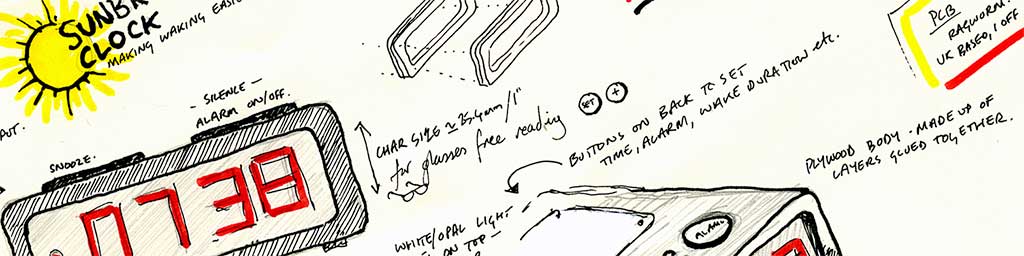 SUNBR
CLOCK
MAKING WAKING EASIE
PUT.
- SILENCE -
ALARM ON/OFF.
SNOOZE.
0738
CHAR SIZE ≃ 25.4mm/1"
for glasses free reading
SET +
BUTTONS ON BACK TO SET
TIME, ALARM, WAKE DURATION etc.
PCB
RAGWORM.
UK BASED, 1 OFF
PLYWOOD BODY - MADE UP OF
LAYERS GLUED TOGETHER.
WHITE/OPAL LIGHT
ON TOP -
ALARM